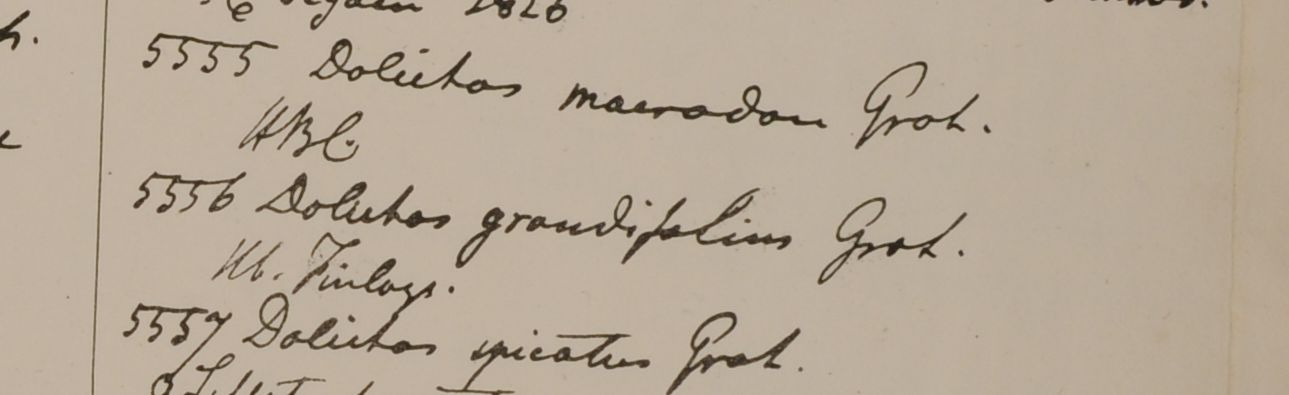 1826
5555 Dolichos macrodon Grah.
HBC.
5556 Dolichos grandifolius Grah.
Hb. Finlays.
5557 Dolichos spicatus Grah.